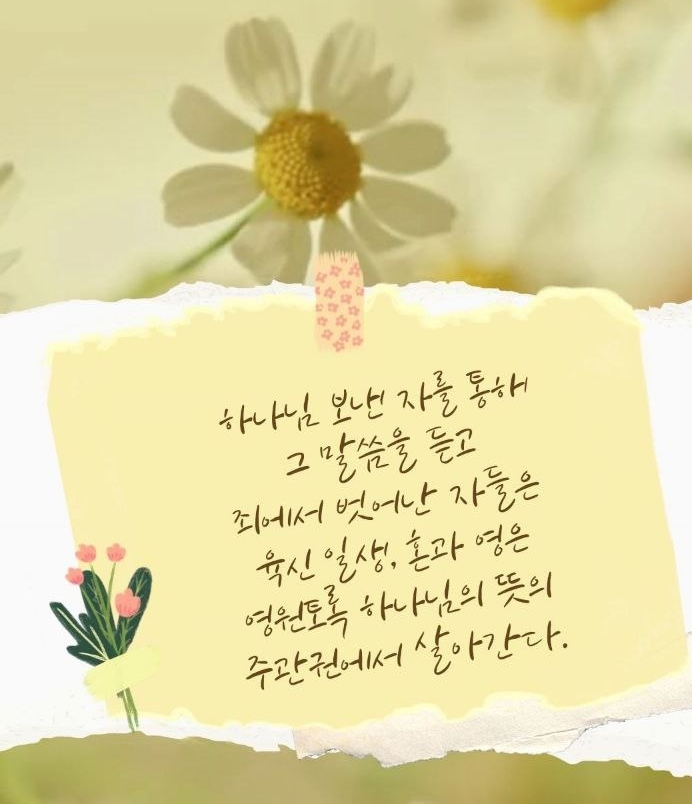 하나님 보낸 자를 통해
그 말씀을 듣고
죄에서 벗어난 자들은
육신 일생, 혼과 영은
영원토록 하나님의 뜻의
주관권에서 살아간다.